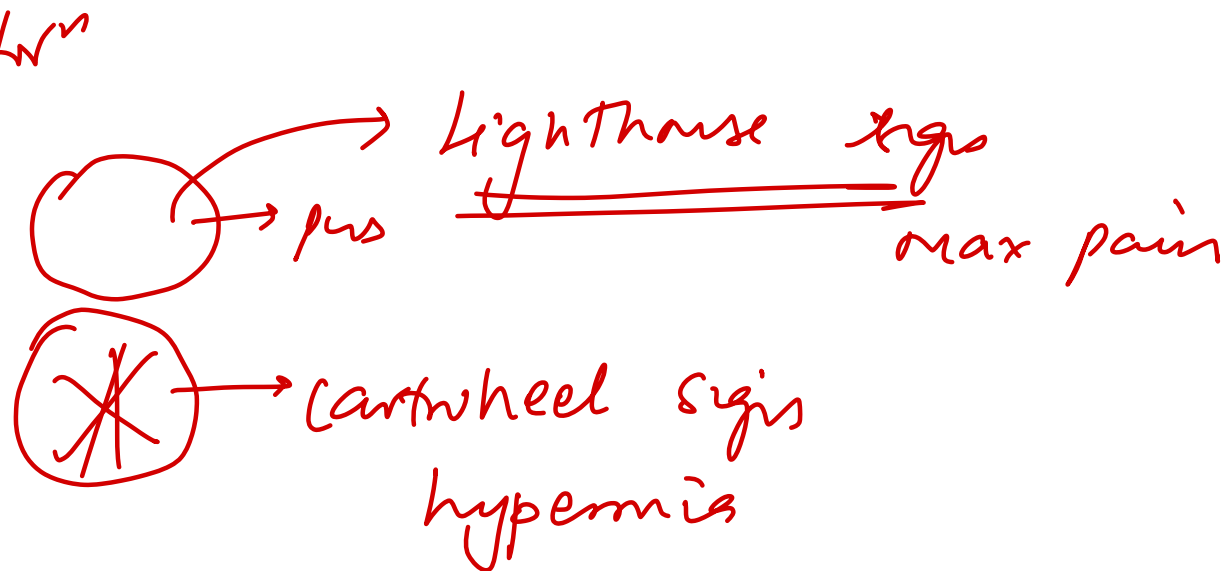 Lighthouse sign
pus
max pain
Cartwheel sign
hypermia